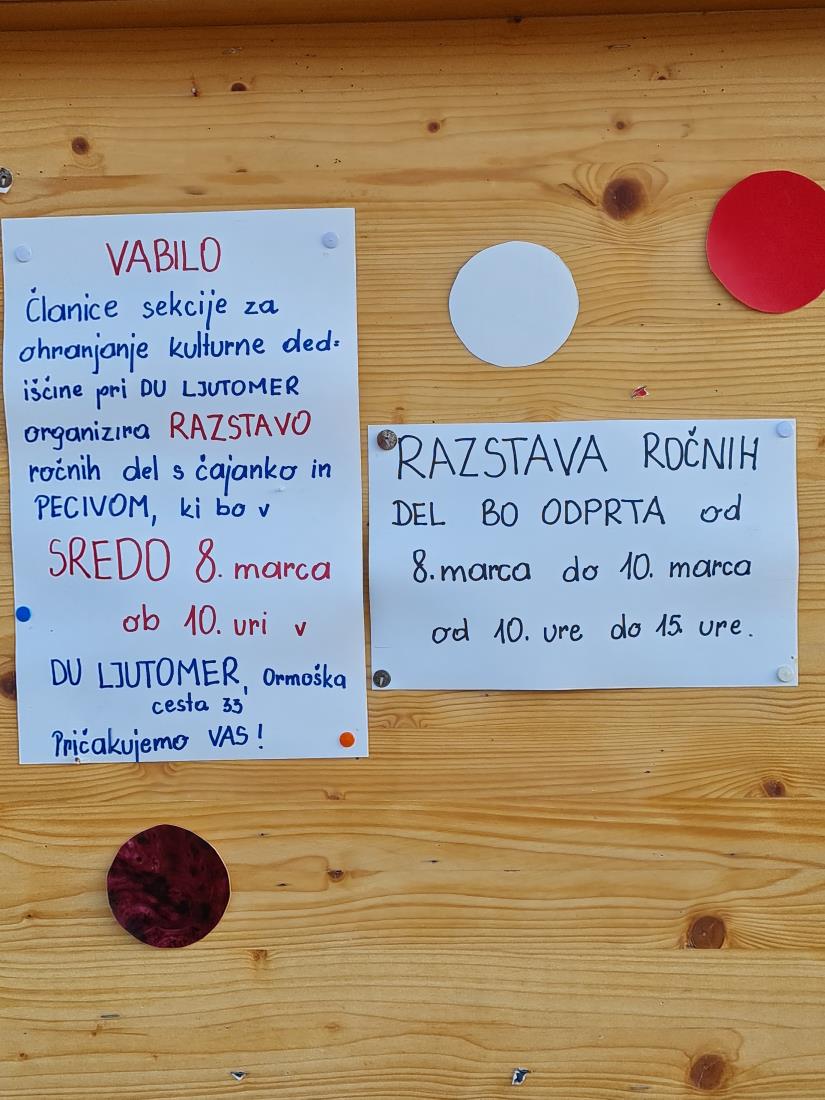 VABILO
Članice sekcije za
ohranjanje kulturne ded=
iščine pri DU LJUTOMER
organizira RAZSTAVO
ročnih del s čajanko in
PECIVOM, ki bo v
SREDO 8. marca
ob 10. uri v
DU LJUTOMER, Ormoška
cesta 33
Pričakujemo VAS!
RAZSTAVA ROČNIH
DEL BO ODPRTA od
8. marca do 10. marca
od 10. ure do 15. ure.